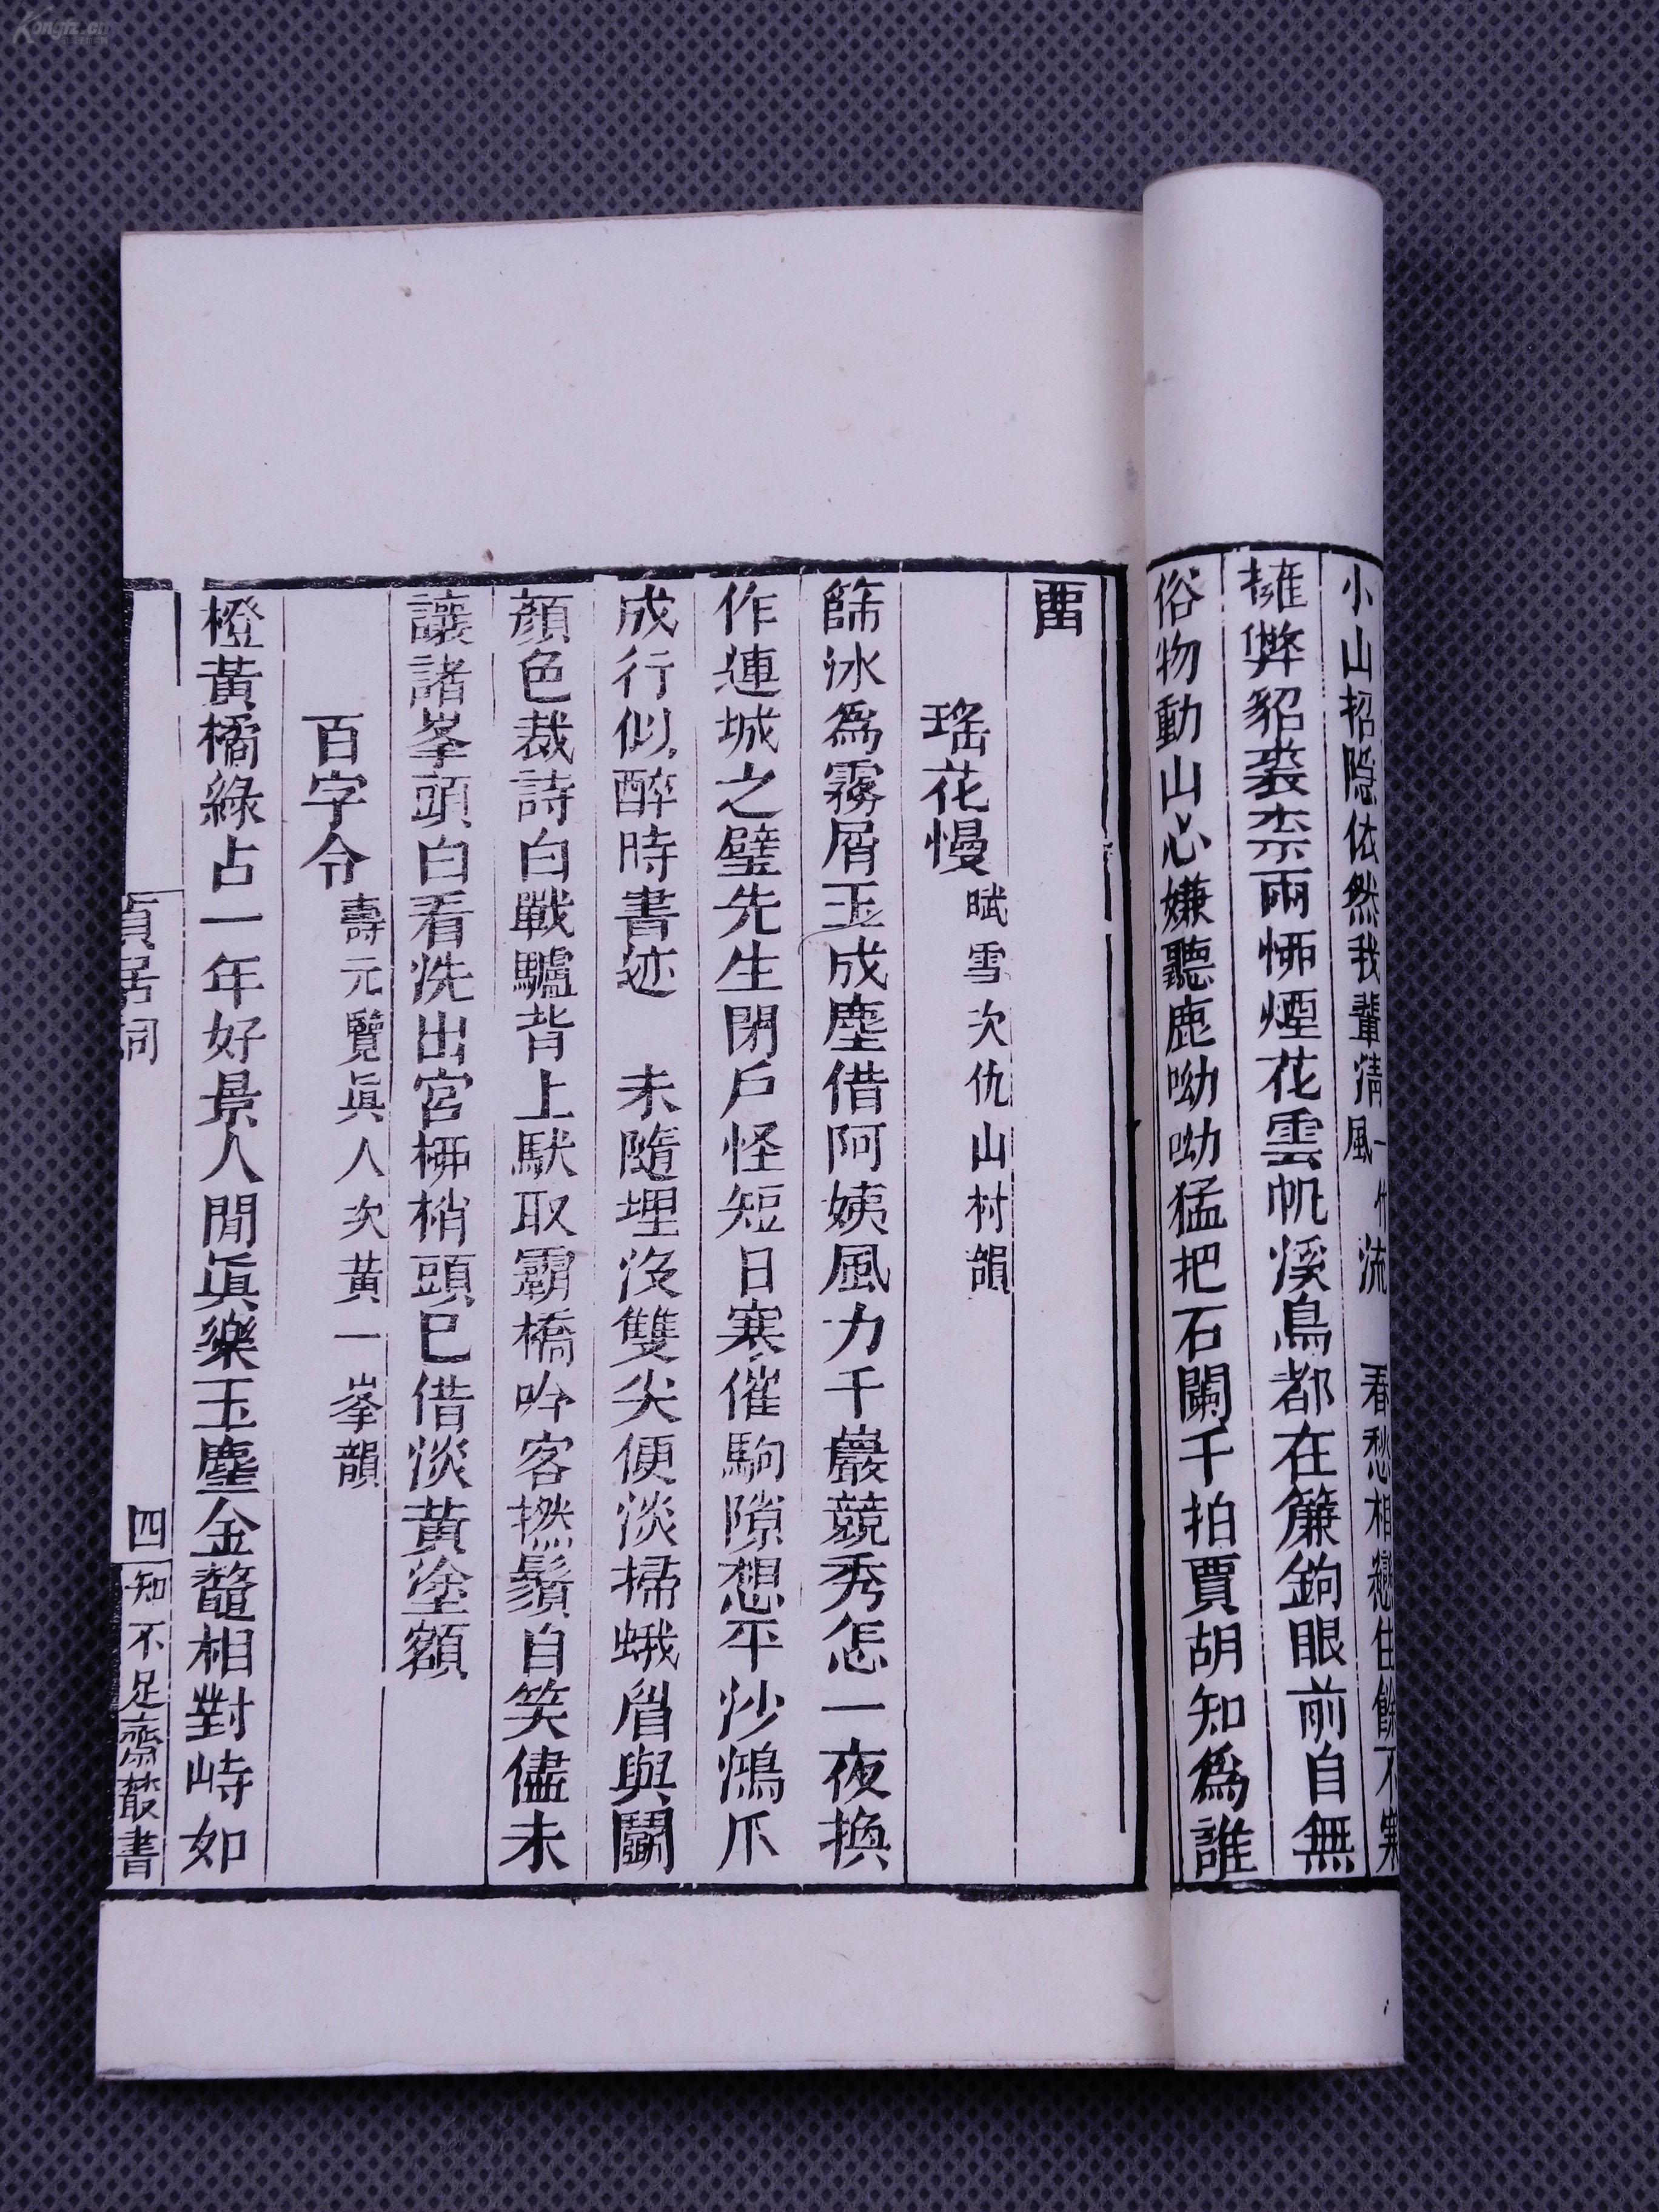 小山招隱依然我輩淸風一作流　春愁相戀住餘不寒
擁弊貂裘柰雨桺煙花雲帆溪鳥都在簾鉤眼前自無
俗物動山心嫌聽鹿呦呦猛把石闌干拍賈胡知爲誰
畱
瑤花慢賦雪次仇山村韻
篩冰爲霧屑玉成塵借阿姨風力千巖競秀怎一夜換
作連城之璧先生閉戶怪短日寒催駒隙想平沙鴻爪
成行似醉時書迹　未隨埋沒雙尖便淡掃蛾眉與鬬
顏色裁詩白戰驢背上馱取霸橋吟客撚鬚自笑儘未
讓諸峯頭白看洗出宮桺梢頭已借淡黃塗額
百字令壽元覽眞人次黃一峯韻
橙黃橘綠占一年好景人閒眞樂玉塵金鼇相對峙如
貞居詞
四
知不足齋叢書
Kongfz.cn